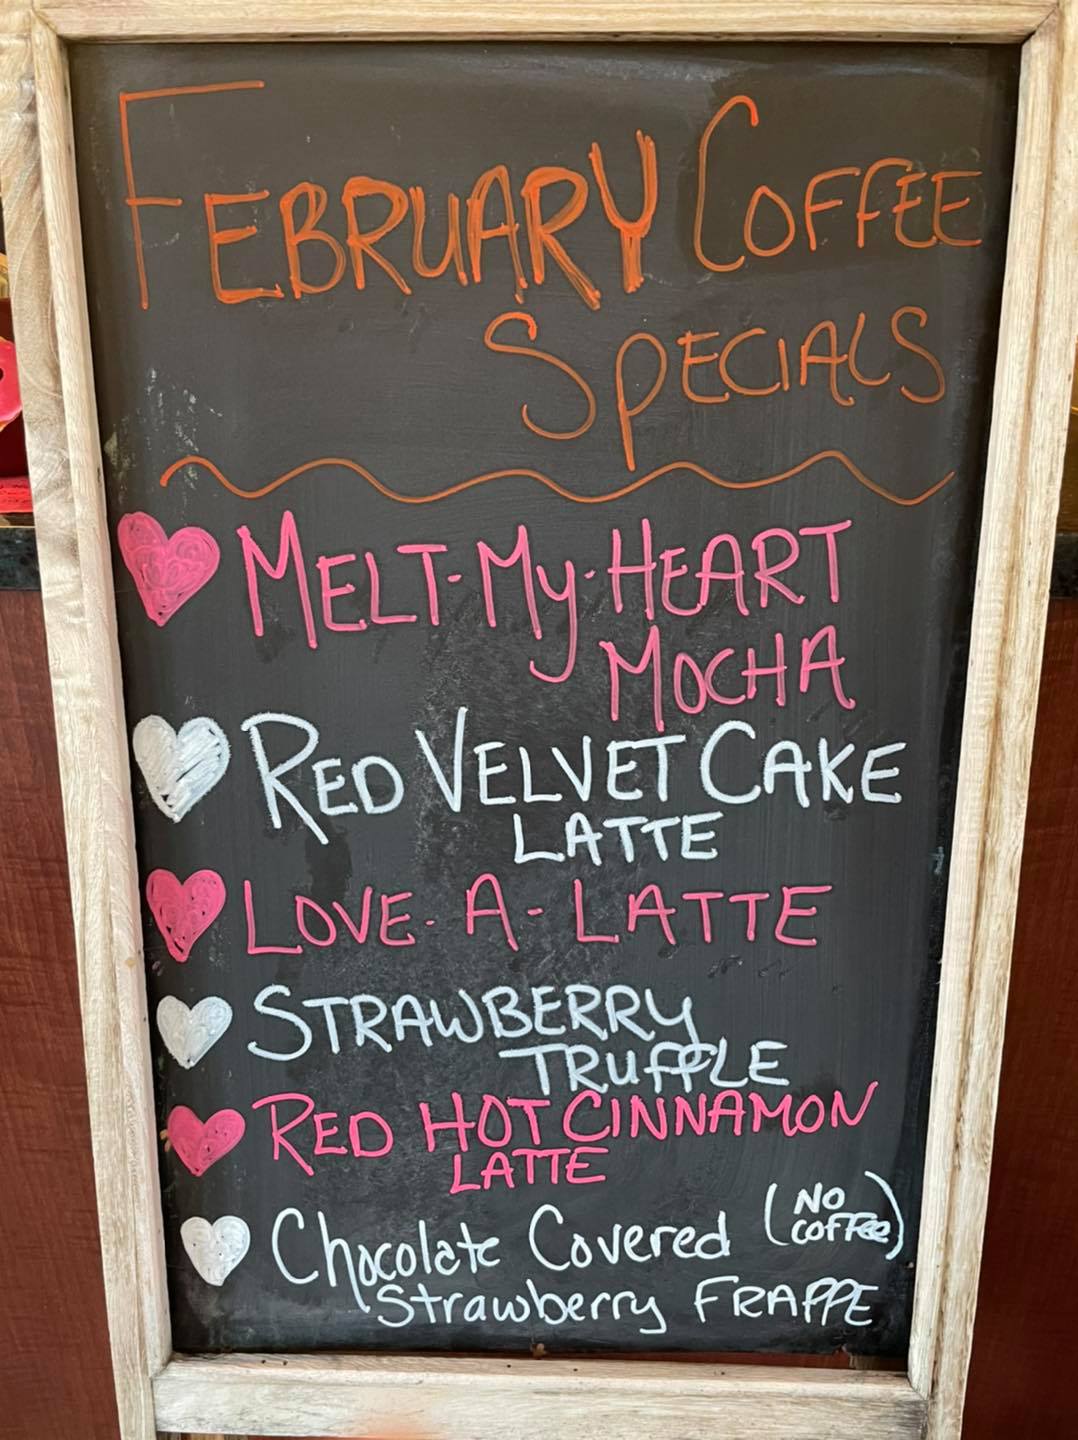 FEBRUARY COFFEE
SPECIALS
MELT-My-HEART
MOCHA
RED VELVET CAKE
LATTE
LOVE-A-LATTE
STRAWBERRY
TRUFFLE
RED HOT CINNAMON
LATTE
Chocolate Covered (NO
COFFEE)
Strawberry FRAPPE